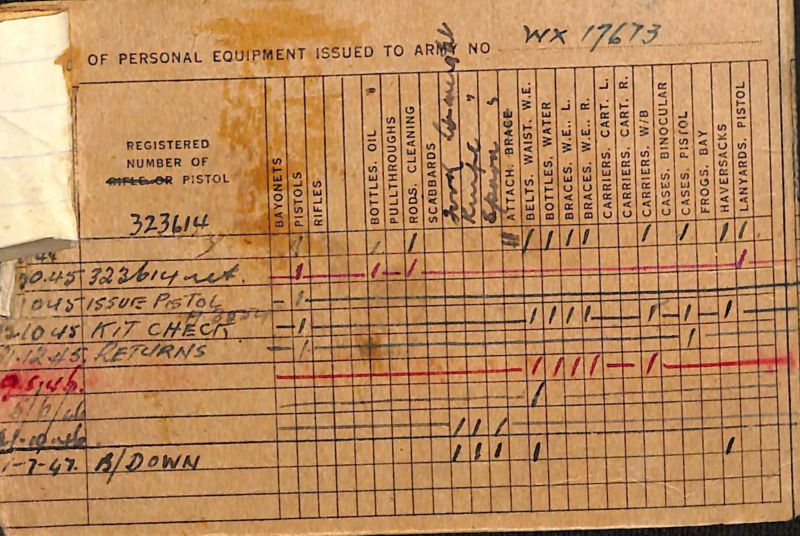 OF PERSONAL EQUIPMENT ISSUED TO ARMY NO WX 17673
REGISTERED
NUMBER OF
RIFLE OR PISTOL
323614
BAYONETS
PISTOLS
RIFLES
BOTTLES, OIL
PULLTHROUGHS
RODS, CLEANING
SCABBARDS
Fork
Knife "
Spoon "
ATTACH. BRACE
BELTS, WAIST, W.E.
BOTTLES, WATER
BRACES, W.E., L.
BRACES, W.E., R.
CARRIERS, CART. L.
CARRIERS, CART. R.
CARRIERS, W/B
CASES, BINOCULAR
CASES, PISTOL
FROGS, BAY
HAVERSACKS
LANYARDS, PISTOL
10.45 323614 ret.
10 45 ISSUE PISTOL
10 45 KIT CHECK
12.45 RETURNS
5/46
-7-47. B/DOWN